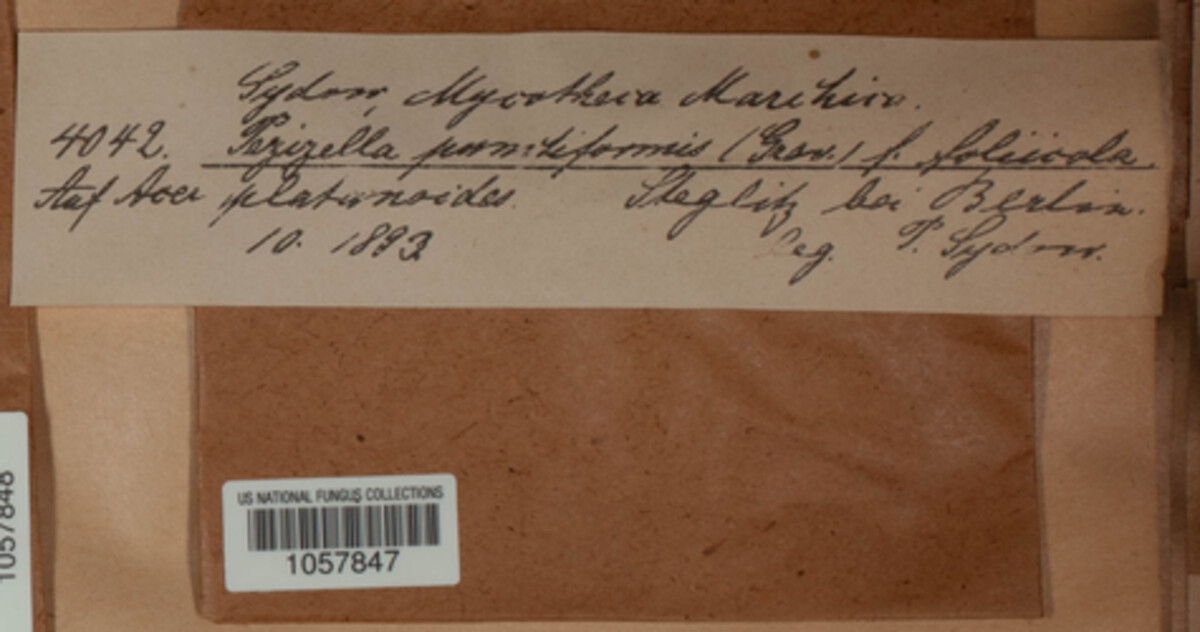 Sydow, Mycotheca Marchica.
4042. Pezizella punctiformis (Grev.) f. foliicola.
Auf Acer platanoides. Steglitz bei Berlin.
10. 1893. leg. P. Sydow.
US NATIONAL FUNGUS COLLECTIONS
1057847
1057848